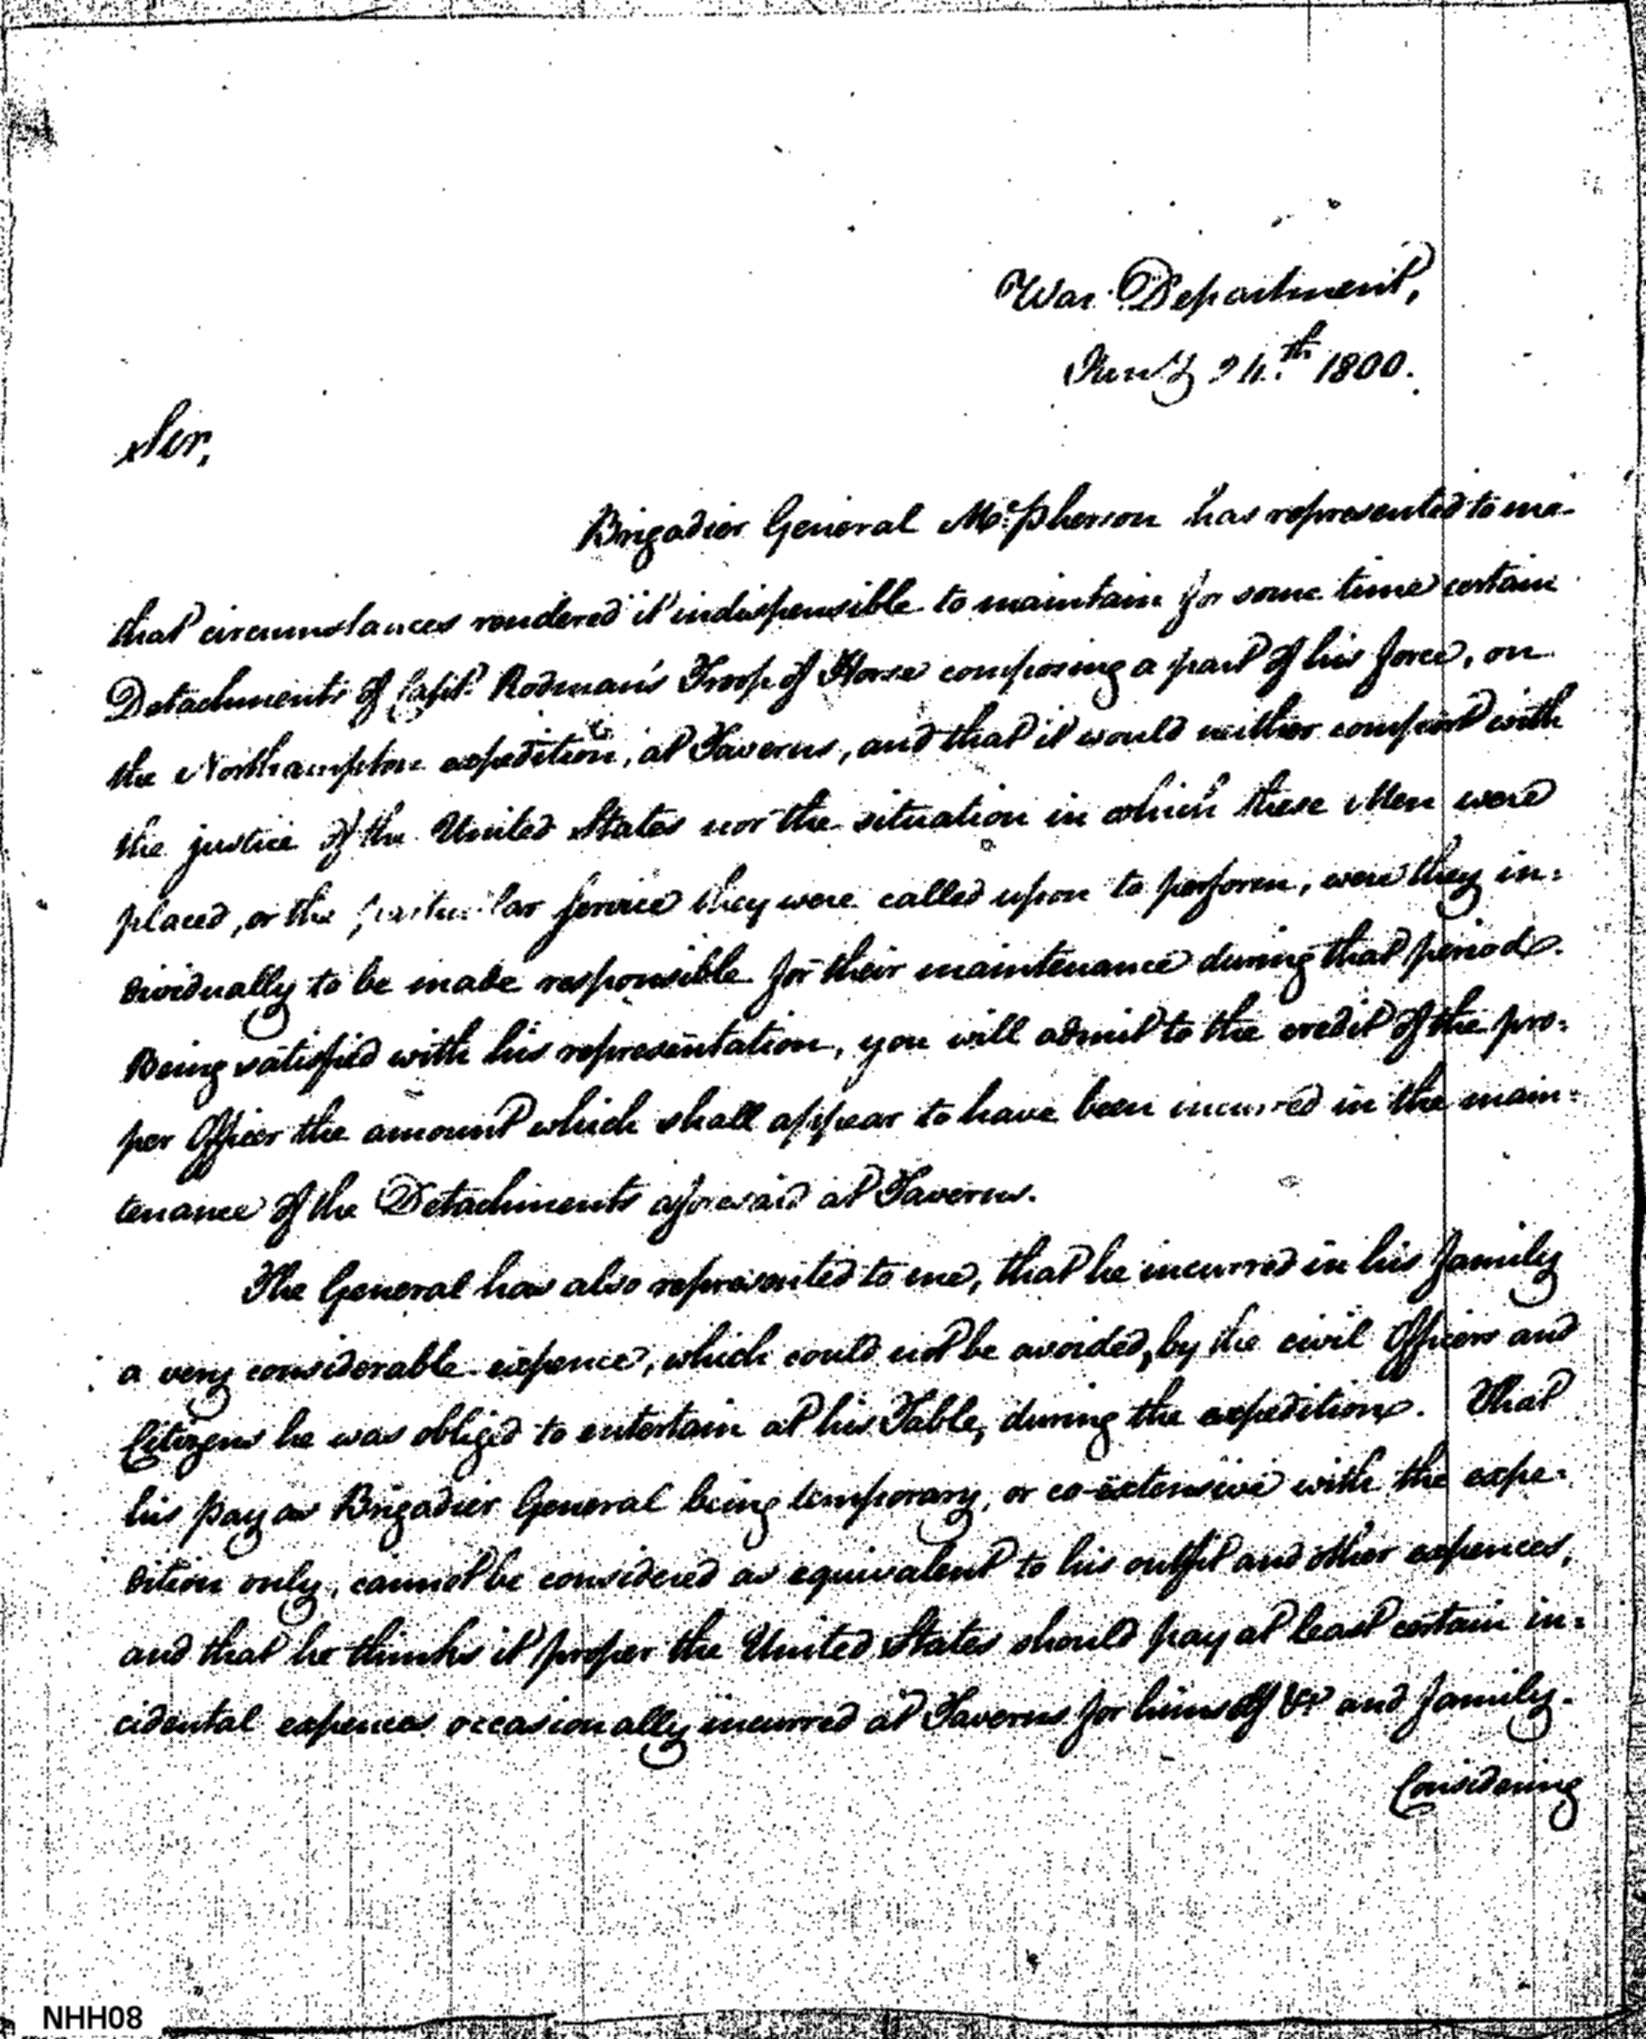 War Department,
Jan'y 24th 1800.
Sir,
Brigadier General McPherson has represented to me
that circumstances rendered it indispensible to maintain for some time certain
Detachments of Capt. Rodman's Troop of Horse composing a part of his force, on
the Northampton expedition, at Taverns, and that it would neither comport with
the justice of the United States nor the situation in which these Men were
placed, or the particular service they were called upon to perform, were they in=
dividually to be made responsible for their maintenance during that period.
Being satisfied with his representation, you will admit to the credit of the pro=
per Officer the amount which shall appear to have been incurred in the main=
tenance of the Detachments aforesaid at Taverns.
The General has also represented to me, that he incurred in his family
a very considerable expence, which could not be avoided, by the civil Officers and
Citizens he was obliged to entertain at his Table, during the expedition. That
his pay as Brigadier General being temporary, or co-extensive with the expe=
dition only, cannot be considered as equivalent to his outfit and other expences,
and that he thinks it proper the United States should pay at least certain in=
cidental expences occasionally incurred at Taverns for himself and family.
Considering
NHH08